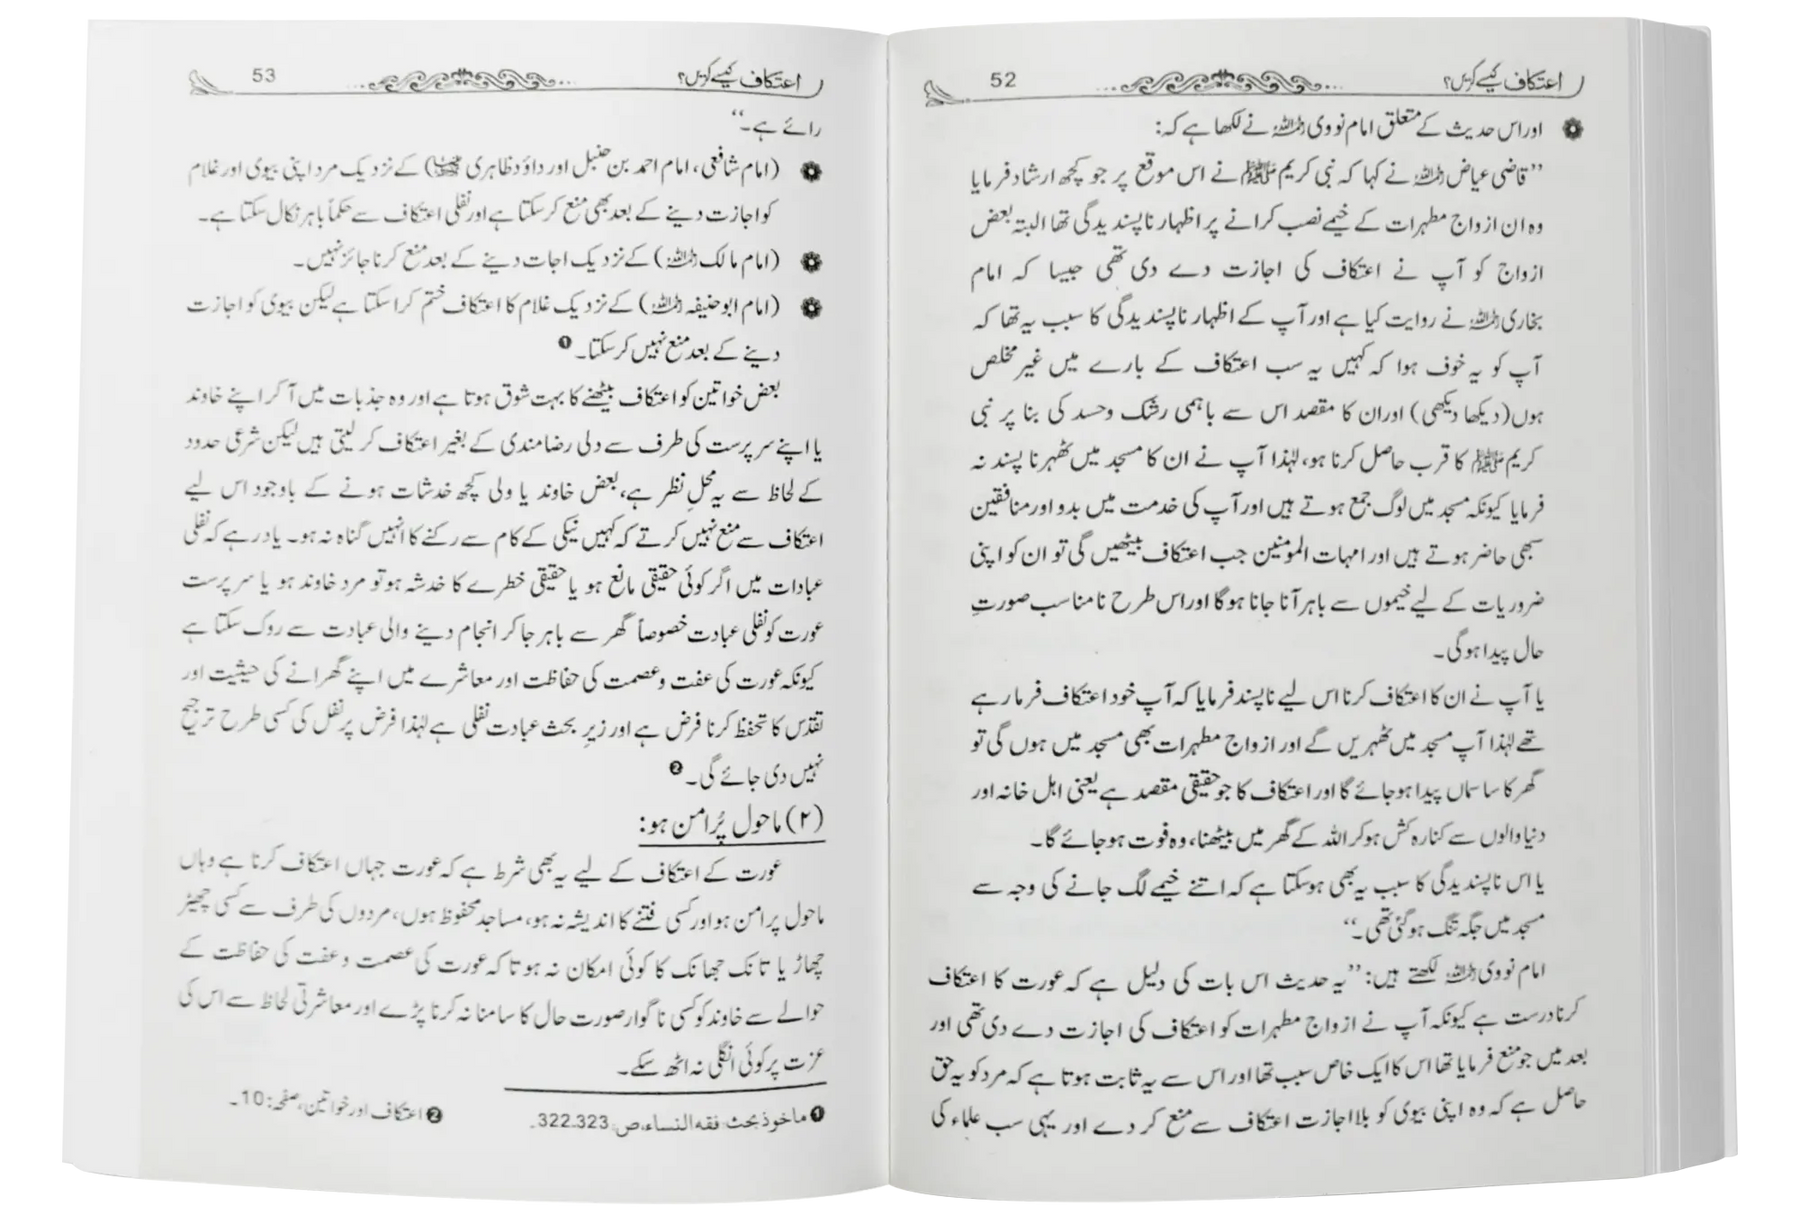 اعتکاف کیسے کریں؟ 52
اور اس حدیث کے متعلق امام نووی رحمہ اللہ نے لکھا ہے کہ:
’’قاضی عیاض رحمہ اللہ نے کہا کہ نبی کریم ﷺ نے اس موقع پر جو کچھ ارشاد فرمایا
وہ ان ازواج مطہرات کے خیمے نصب کرانے پر اظہار ناپسندیدگی تھا البتہ بعض
ازواج کو آپ نے اعتکاف کی اجازت دے دی تھی جیسا کہ امام
بخاری رحمہ اللہ نے روایت کیا ہے اور آپ کے اظہار ناپسندیدگی کا سبب یہ تھا کہ
آپ کو یہ خوف ہوا کہ کہیں یہ سب اعتکاف کے بارے میں غیر مخلص
ہوں (دیکھا دیکھی) اور ان کا مقصد اس سے باہمی رشک وحسد کی بنا پر نبی
کریم ﷺ کا قرب حاصل کرنا ہو، لہٰذا آپ نے ان کا مسجد میں ٹھہرنا پسند نہ
فرمایا کیونکہ مسجد میں لوگ جمع ہوتے ہیں اور آپ کی خدمت میں بدو اور منافقین
سبھی حاضر ہوتے ہیں اور امہات المومنین جب اعتکاف بیٹھیں گی تو ان کو اپنی
ضروریات کے لیے خیموں سے باہر آنا جانا ہوگا اور اس طرح نامناسب صورتِ
حال پیدا ہوگی۔
یا آپ نے ان کا اعتکاف کرنا اس لیے ناپسند فرمایا کہ آپ خود اعتکاف فرما رہے
تھے لہٰذا آپ مسجد میں ٹھہریں گے اور ازواج مطہرات بھی مسجد میں ہوں گی تو
گھر کا سا سماں پیدا ہو جائے گا اور اعتکاف کا جو حقیقی مقصد ہے یعنی اہل خانہ اور
دنیا والوں سے کنارہ کش ہو کر اللہ کے گھر میں بیٹھنا، وہ فوت ہو جائے گا۔
یا اس ناپسندیدگی کا سبب یہ بھی ہو سکتا ہے کہ اتنے خیمے لگ جانے کی وجہ سے
مسجد میں جگہ تنگ ہو گئی تھی۔‘‘
امام نووی رحمہ اللہ لکھتے ہیں: ’’یہ حدیث اس بات کی دلیل ہے کہ عورت کا اعتکاف
کرنا درست ہے کیونکہ آپ نے ازواج مطہرات کو اعتکاف کی اجازت دے دی تھی اور
بعد میں جو منع فرمایا تھا اس کا ایک خاص سبب تھا اور اس سے یہ ثابت ہوتا ہے کہ مرد کو یہ حق
حاصل ہے کہ وہ اپنی بیوی کو بلا اجازت اعتکاف سے منع کر دے اور یہی سب علماء کی
اعتکاف کیسے کریں؟ 53
رائے ہے۔‘‘
(امام شافعی، امام احمد بن حنبل اور داؤد ظاہری رحمہم اللہ) کے نزدیک مرد اپنی بیوی اور غلام
کو اجازت دینے کے بعد بھی منع کر سکتا ہے اور نفلی اعتکاف سے حکماً باہر نکال سکتا ہے۔
(امام مالک رحمہ اللہ) کے نزدیک اجات دینے کے بعد منع کرنا جائز نہیں۔
(امام ابوحنیفہ رحمہ اللہ) کے نزدیک غلام کا اعتکاف ختم کرا سکتا ہے لیکن بیوی کو اجازت
دینے کے بعد منع نہیں کر سکتا۔ ❶
بعض خواتین کو اعتکاف بیٹھنے کا بہت شوق ہوتا ہے اور وہ جذبات میں آ کر اپنے خاوند
یا اپنے سرپرست کی طرف سے دلی رضامندی کے بغیر اعتکاف کر لیتی ہیں لیکن شرعی حدود
کے لحاظ سے یہ محلِ نظر ہے، بعض خاوند یا ولی کچھ خدشات ہونے کے باوجود اس لیے
اعتکاف سے منع نہیں کرتے کہ کہیں نیکی کے کام سے رکنے کا انہیں گناہ نہ ہو۔ یاد رہے کہ نفلی
عبادات میں اگر کوئی حقیقی مانع ہو یا حقیقی خطرے کا خدشہ ہو تو مرد خاوند ہو یا سرپرست
عورت کو نفلی عبادت خصوصاً گھر سے باہر جا کر انجام دینے والی عبادت سے روک سکتا ہے
کیونکہ عورت کی عفت وعصمت کی حفاظت اور معاشرے میں اپنے گھرانے کی حیثیت اور
تقدّس کا تحفظ کرنا فرض ہے اور زیرِ بحث عبادت نفلی ہے لہٰذا فرض پر نفل کی کسی طرح ترجیح
نہیں دی جائے گی۔ ❷
(۲) ماحول پُرامن ہو:
عورت کے اعتکاف کے لیے یہ بھی شرط ہے کہ عورت جہاں اعتکاف کرنا ہے وہاں
ماحول پرامن ہو اور کسی فتنے کا اندیشہ نہ ہو، مساجد محفوظ ہوں، مردوں کی طرف سے کسی چھیڑ
چھاڑ یا تانک جھانک کا کوئی امکان نہ ہو تا کہ عورت کی عصمت وعفت کی حفاظت کے
حوالے سے خاوند کو کسی ناگوار صورت حال کا سامنا نہ کرنا پڑے اور معاشرتی لحاظ سے اس کی
عزت پر کوئی انگلی نہ اٹھ سکے۔
❶ ماخوذ بحث: فقه النساء، ص: 322،323۔ ❷ اعتکاف اور خواتین، صفحہ: 10۔